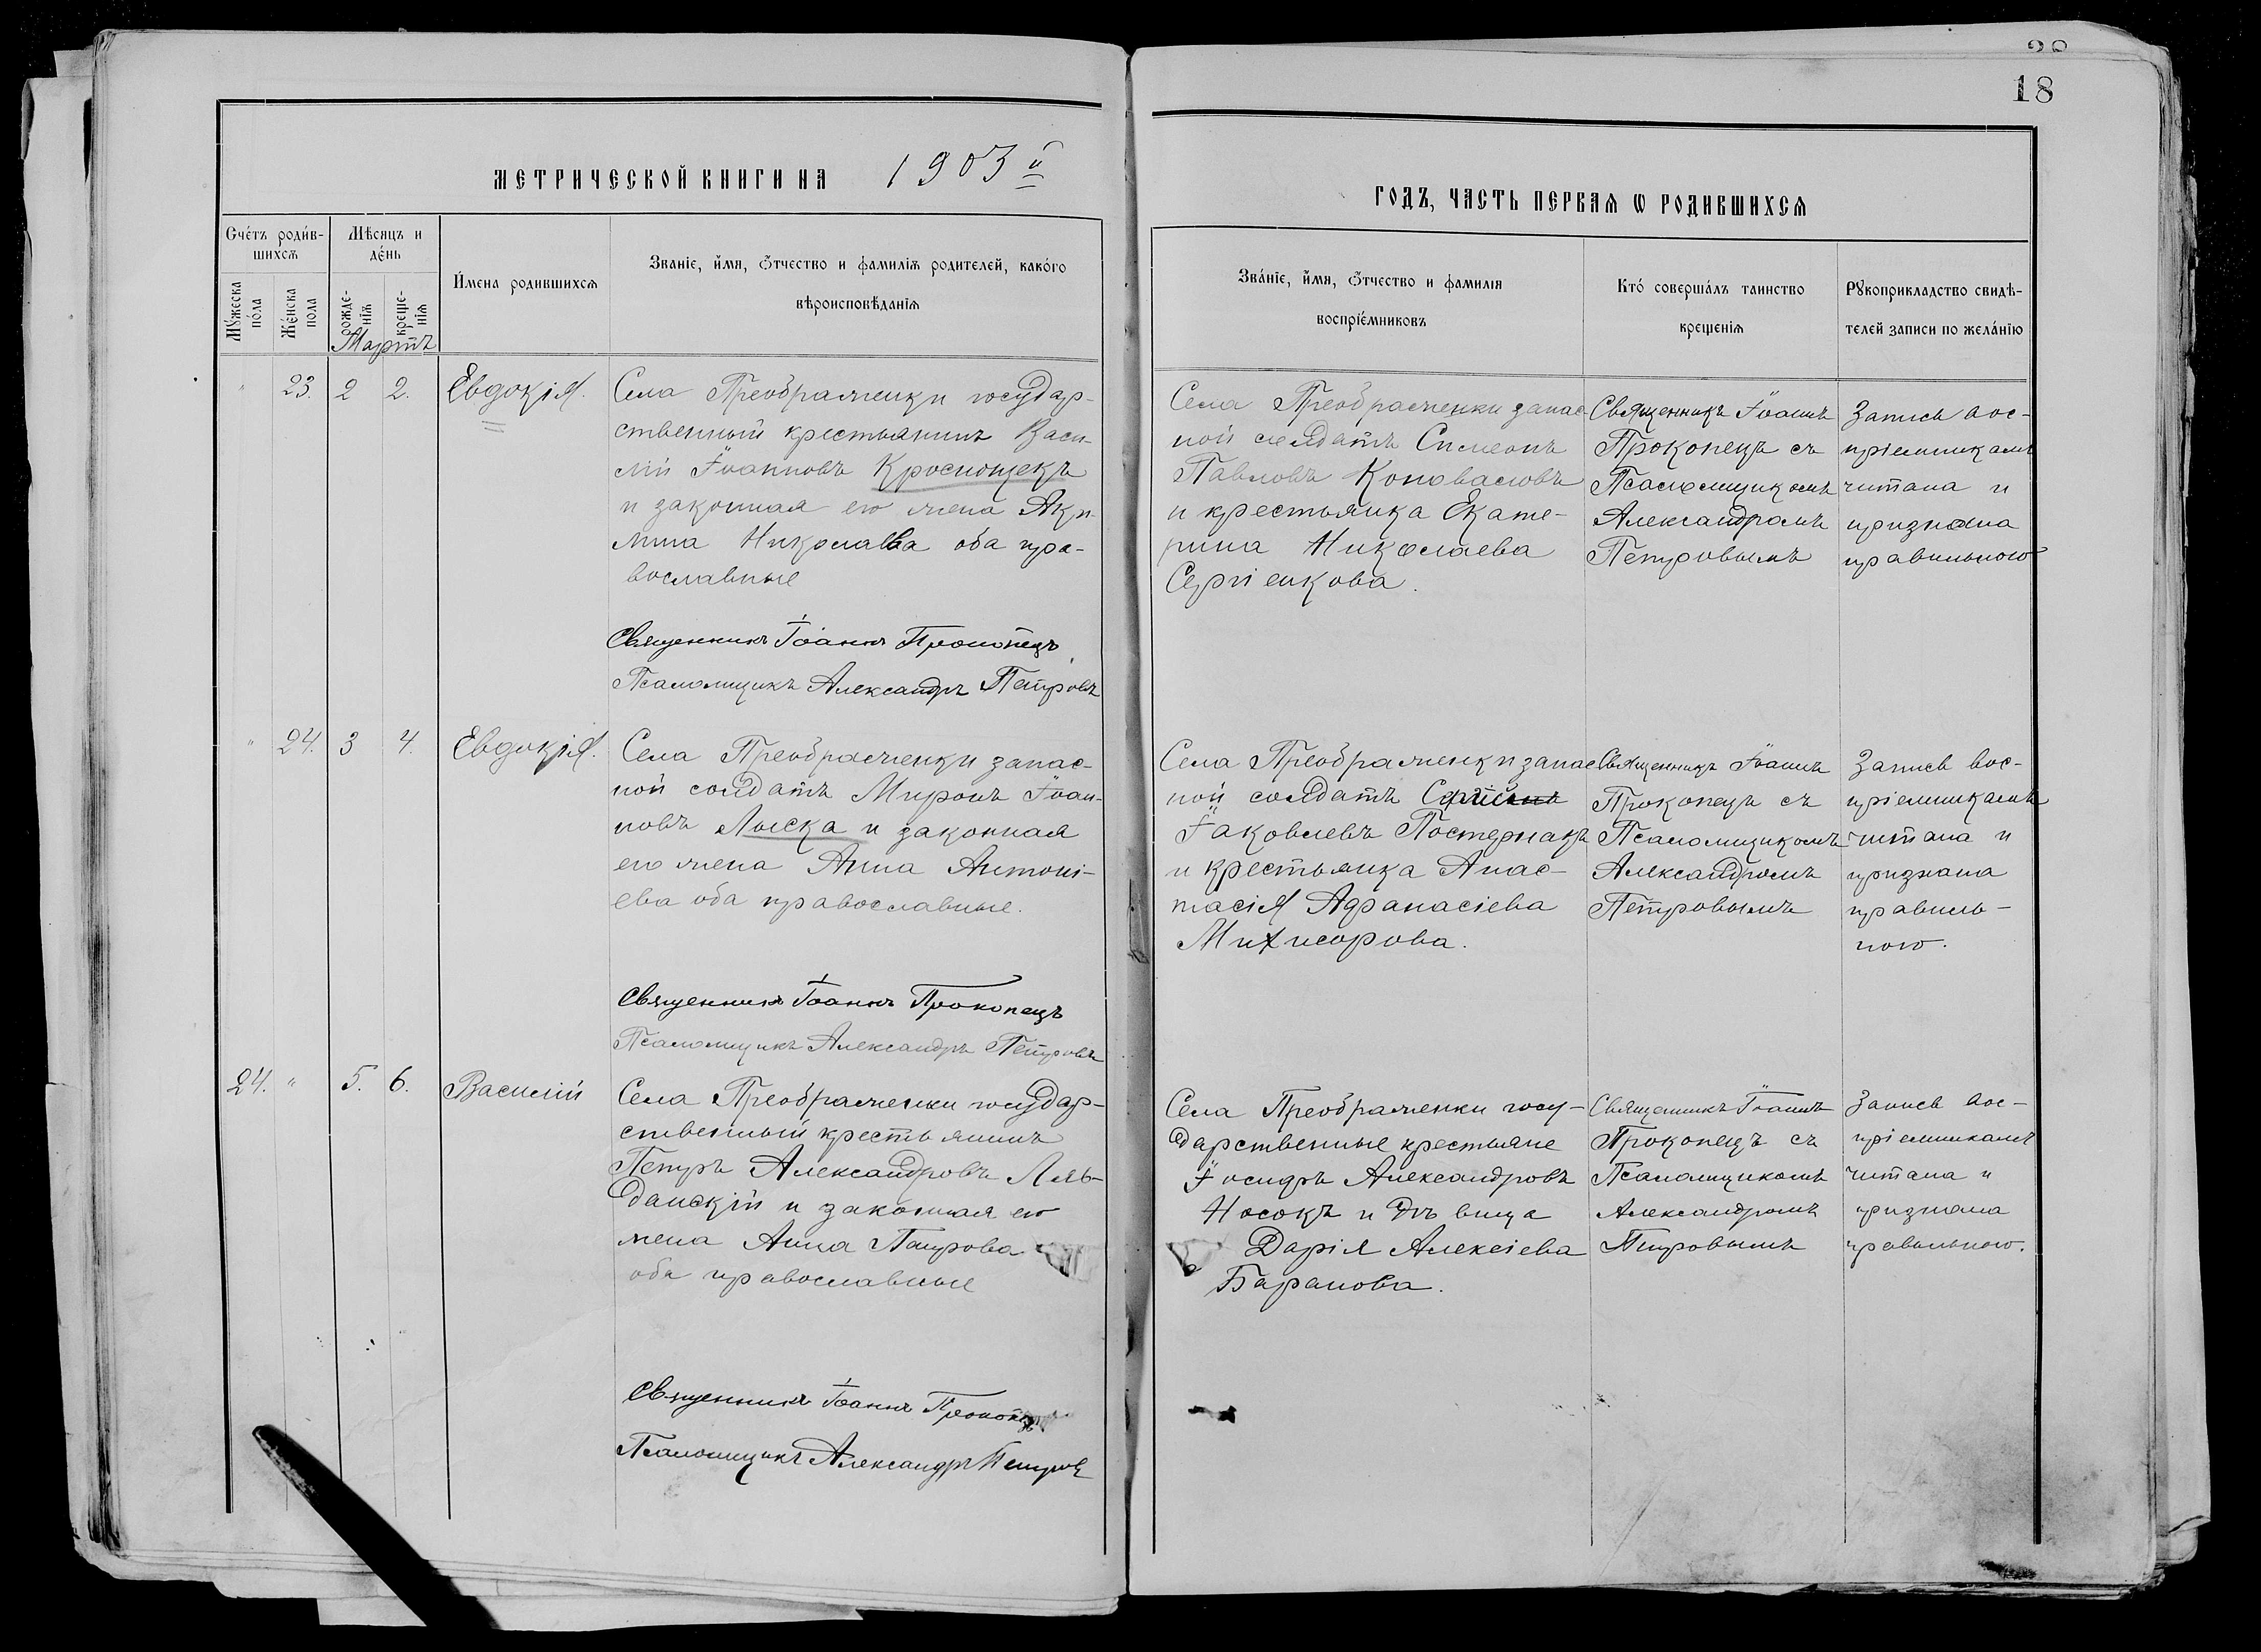 38
18
МЕТРИЧЕСКОЙ КНИГИ НА 1903й
ГОДЪ, ЧАСТЬ ПЕРВАЯ Ѡ РОДИВШИХСЯ
Счетъ родив-
шихся
Мѣсяцъ и
день
Имена родившихся
Званіе, имя, ѿчество и фамилія родителей, какого
вѣроисповѣданія
Мужеска
пола
Женска
пола
рожде-
нія
креще-
нія
Мартъ
Званіе, имя, ѿчество и фамилія
воспріемниковъ
Кто совершалъ таинство
крещенія
Рукоприкладство свидѣ-
телей записи по желанію
" 23. 2 2. Евдокія.
Села Преображенки государ-
ственный крестьянинъ Васи-
лій Іоанновъ Кроснощекъ
и законная его жена Аки-
лина Николаева оба пра-
вославные
Священникъ Іоаннъ Прокопецъ
Псаломщикъ Александръ Петровъ
Села Преображенки запас-
ной солдатъ Симеонъ
Павловъ Коновасовъ
и крестьянка Екате-
рина Николаева
Сергіенкова.
Священникъ Іоаннъ
Прокопецъ съ
Псаломщикомъ
Александромъ
Петровымъ
Запись вос-
пріемникамъ
читана и
признана
правильною
" 24. 3 4. Евдокія.
Села Преображенки запас-
ной солдатъ Миронъ Іоан-
новъ Лыска и законная
его жена Анна Антоні-
ева оба православные.
Священникъ Іоаннъ Прокопецъ
Псаломщикъ Александръ Петровъ
Села Преображенки запас
ной солдатъ
Іаковлевъ Постернакъ
и крестьянка Анас-
тасія Афанасіева
Священникъ Іоаннъ
Прокопецъ съ
Псаломщикомъ
Александромъ
Петровымъ
Запись вос-
пріемникамъ
читана и
признана
правиль-
ною.
24. " 5. 6. Василій
Села Преображенки государ-
ственный крестьянинъ
Петръ Александровъ Ляв-
данскій и законная его
жена Анна Петрова
оба православные
Священникъ Іоаннъ Прокопецъ
Псаломщикъ Александръ Петровъ
Села Преображенки госу-
дарственные крестьяне
Іосифъ Александровъ
Носокъ и дѣвица
Дарія Алексіева
Баранова.
Священникъ Іоаннъ
Прокопецъ съ
Псаломщикомъ
Александромъ
Петровымъ
Запись вос-
пріемникамъ
читана и
признана
правильною.